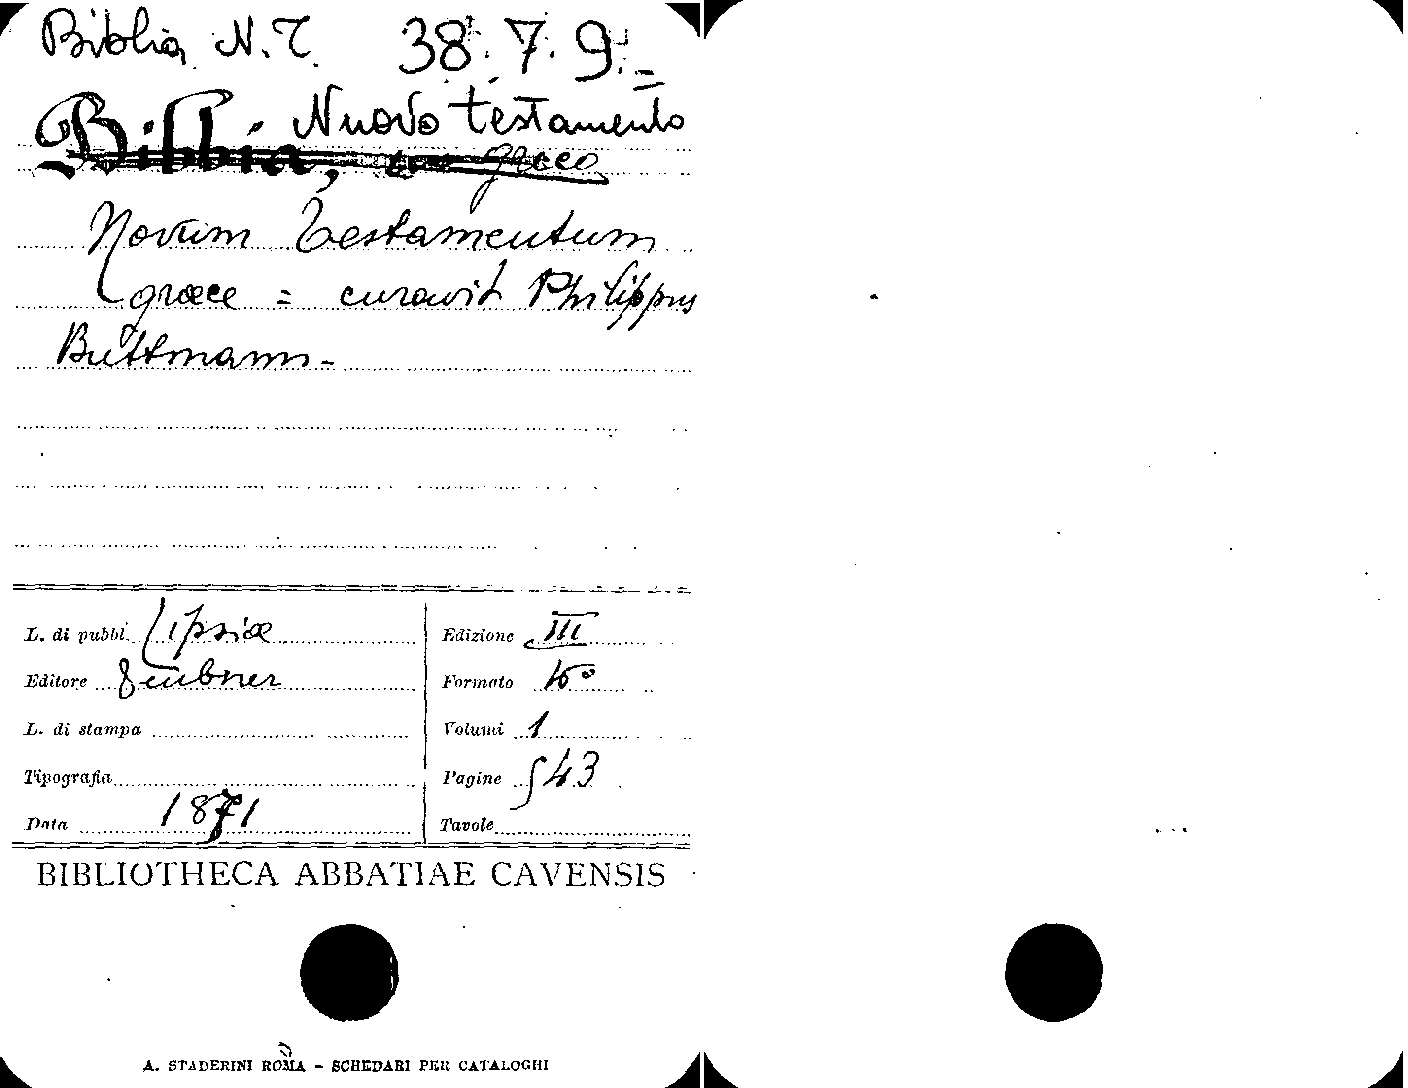 Biblia N.T. 38.7.9.=
Nuovo testamento
Bibbia, greco
Novum Testamentum
graece = curavit Philippus
Buttmann -
L. di pubbl. Lipsiae Edizione III
Editore Teubner Formato 16°
L. di stampa Volumi 1
Tipografia Pagine 543
Data 1871 Tavole
BIBLIOTHECA ABBATIAE CAVENSIS
A. STADERINI ROMA - SCHEDARI PER CATALOGHI